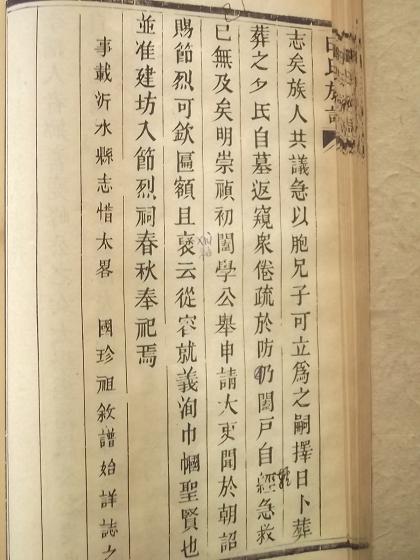 氏族譜
志矣族人共議急以胞兄子可立爲之嗣擇日卜葬
葬之夕氏自墓返窺衆倦疏於防仍閤戶自經急救
已無及矣明崇禎初闔學公舉申請大吏聞於朝詔
賜節烈可欽匾額且褒云從容就義洵巾幗聖賢也
並准建坊入節烈祠春秋奉祀焉
事載沂水縣志惜太畧 國珍祖敘譜始詳誌之